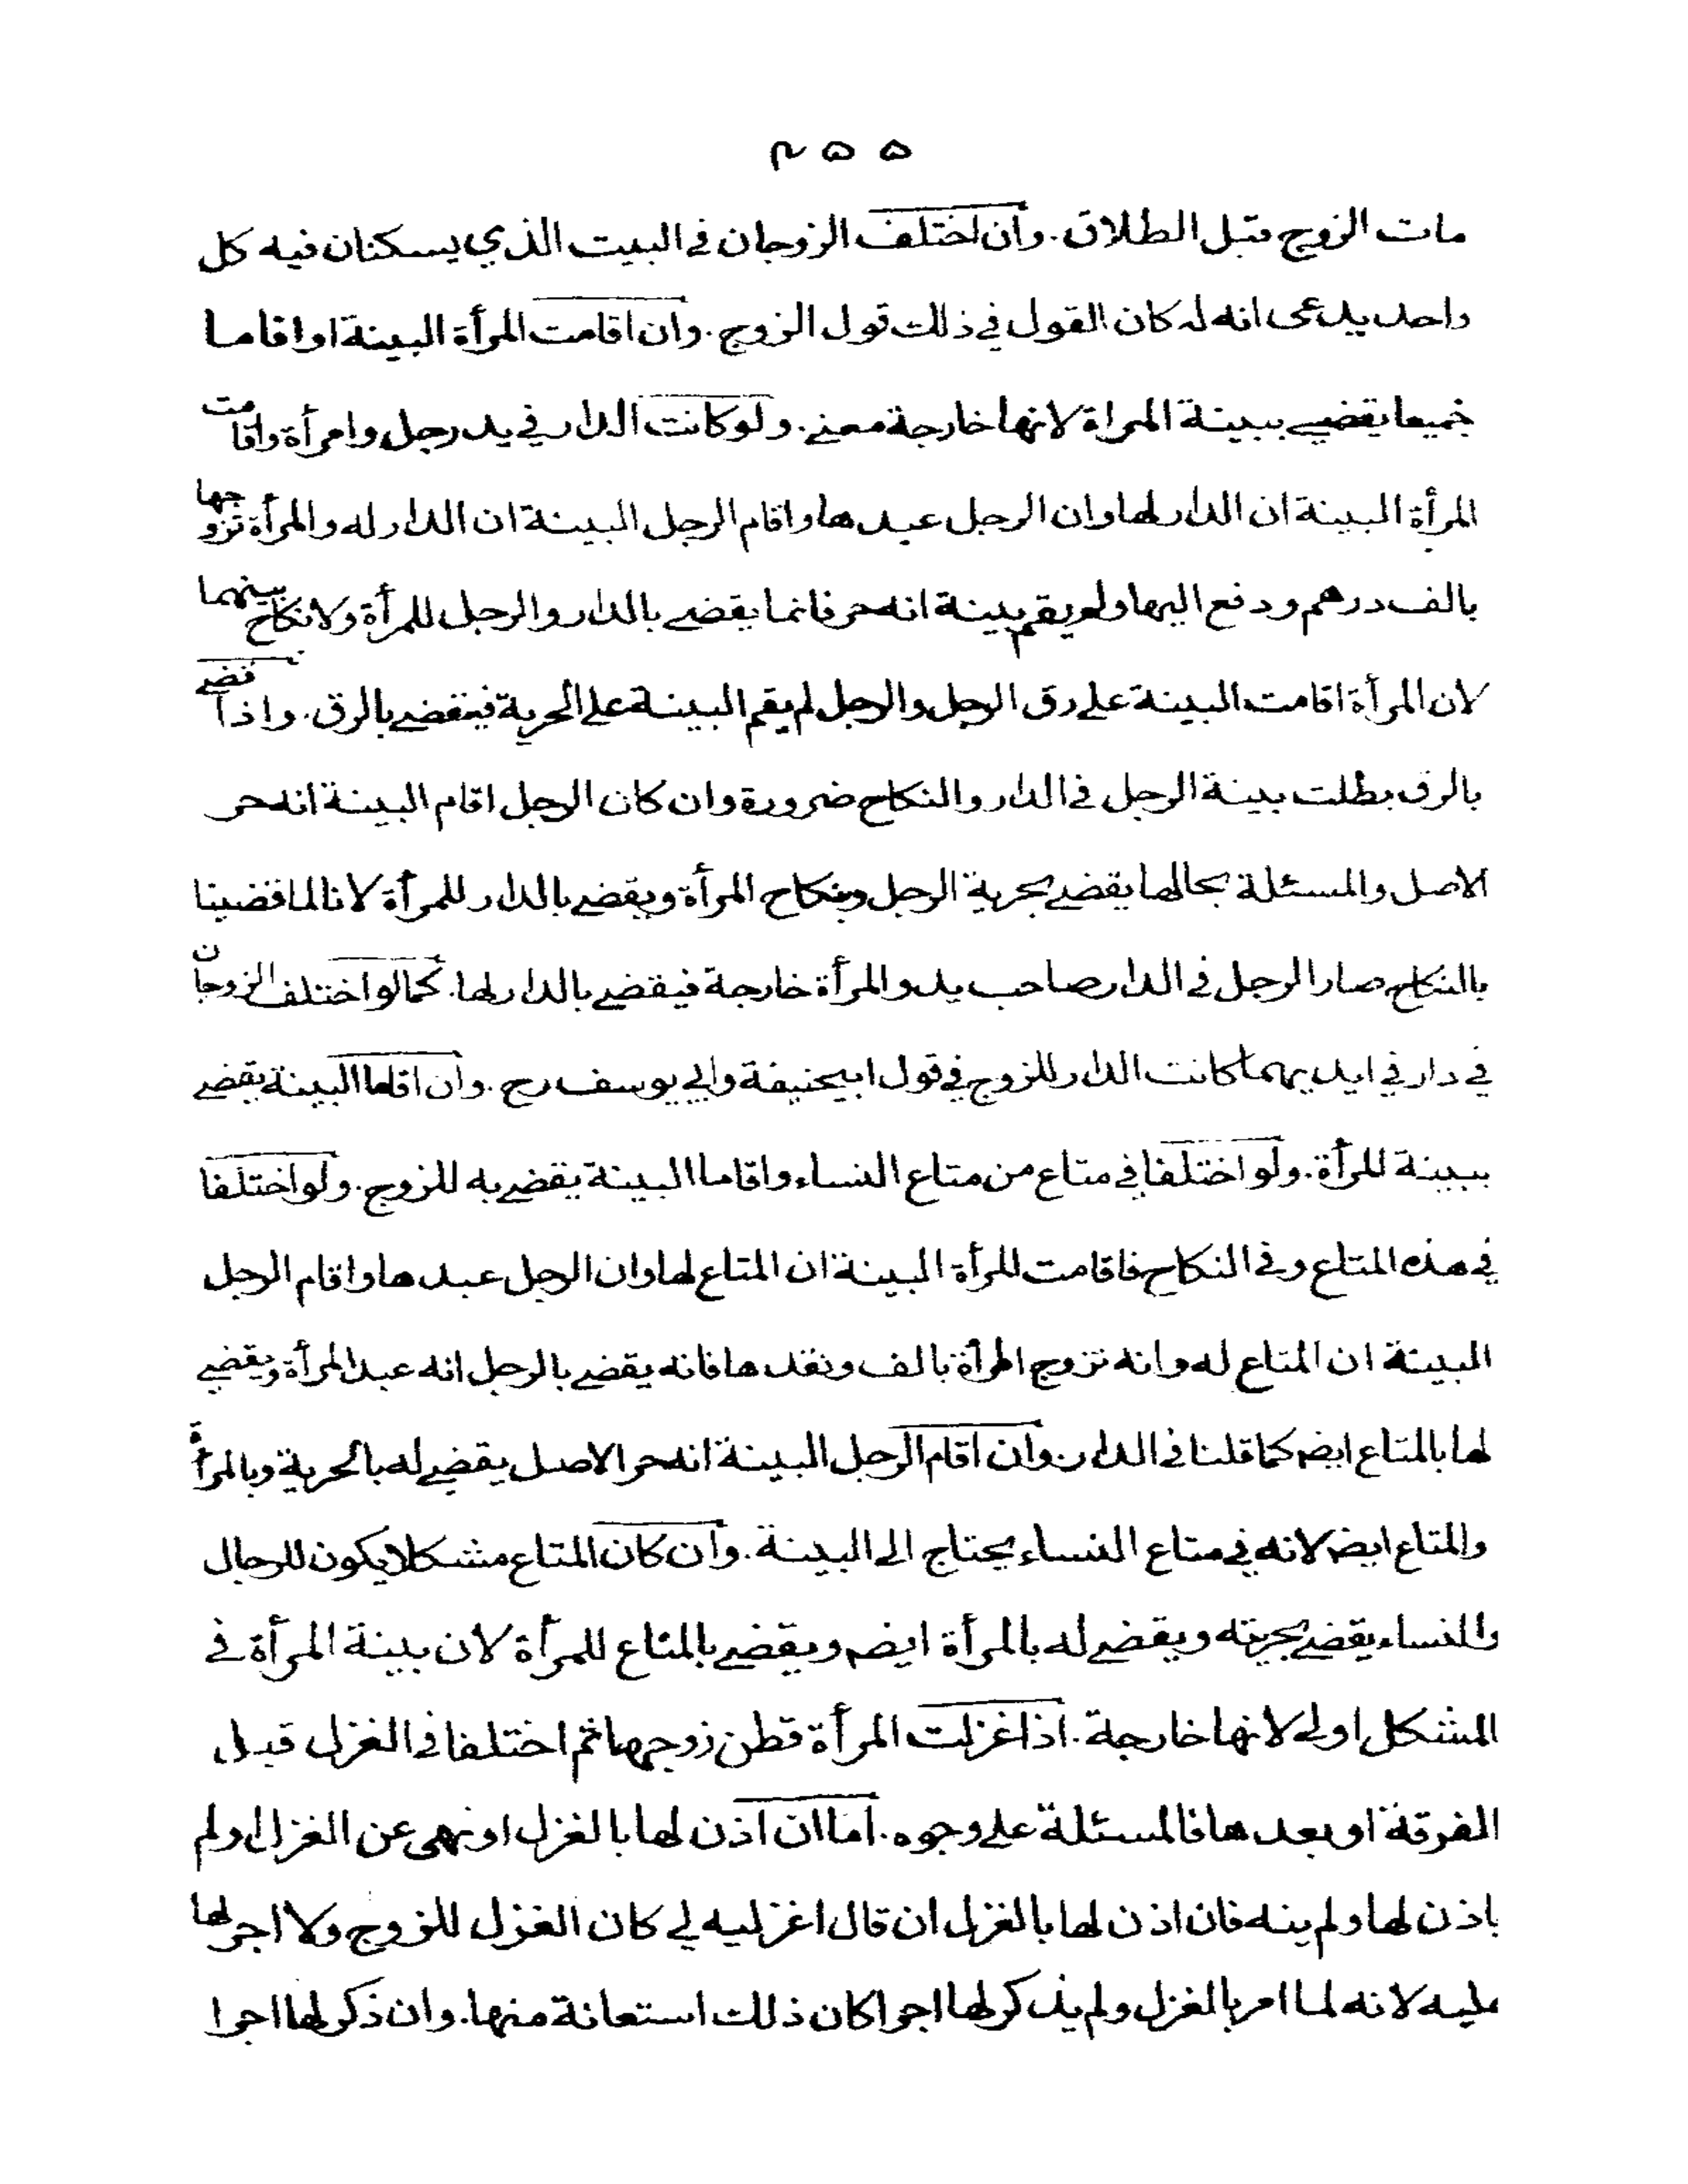 ٤٥٥
مات الزوج قبل الطلاق . وان اختلف الزوجان في البيت الذي يسكنان فيه كل
واحد يدعى انه له كان القول في ذلك قول الزوج . وان اقامت المرأة البينة او اقاما
جميعا يقضى ببينة المراة لانها خارجة معنى . ولو كانت الدار في يد رجل وامرأة واقامت
المرأة البينة ان الدار لها وان الرجل عبدها واقام الرجل البينة ان الدار له والمرأة تزوجها
بالف درهم ودفع اليها ولم يقم بينة انه حر فانما يقضى بالدار والرجل للمرأة ولا نكاح بينهما
لان المرأة اقامت البينة على رق الرجل والرجل لم يقم البينة على الحرية فيقضى بالرق . واذا قضى
بالرق بطلت بينة الرجل في الدار والنكاح ضرورة وان كان الرجل اقام البينة انه حر
الاصل والمسئلة بحالها يقضى بحرية الرجل وبنكاح المرأة ويقضى بالدار للمرأة لانا لما قضينا
بالنكاح صار الرجل في الدار صاحب يد والمرأة خارجة فيقضى بالدار لها . كما لو اختلف الزوجان
في دار في ايديهما كانت الدار للزوج في قول ابيحنيفة وابي يوسف رح . وان اقاما البينة يقضى
ببينة للمرأة . ولو اختلفا في متاع من متاع النساء واقاما البينة يقضى به للزوج . ولو اختلفا
في هذه المتاع وفي النكاح فاقامت للمرأة البينة ان المتاع لها وان الرجل عبدها واقام الرجل
البينة ان المتاع له وانه تزوج المرأة بالف ونقدها فانه يقضى بالرجل انه عبد المرأة ويقضى
لها بالمتاع ايضم كما قلنا في الدار . وان اقام الرجل البينة انه حر الاصل يقضى له بالحرية وبالمرأة
والمتاع ايضم لانه في متاع النساء يحتاج الى البينة . وان كان المتاع مشكلا يكون للرجال
والنساء يقضى بحريته ويقضى له بالمرأة ايضم ويقضى بالمتاع للمرأة لان بينة المرأة في
المشكل اولى لانها خارجة . اذا غزلت المرأة قطن زوجها ثم اختلفا في الغزل قبل
الفرقة او بعدها فالمسئلة على وجوه . اما ان اذن لها بالغزل او نهى عن الغزل او لم
ياذن لها ولم ينه فان اذن لها بالغزل ان قال اغزليه لي كان الغزل للزوج ولا اجر لها
عليه لانه لما امر بالغزل ولم يذكر لها اجرا كان ذلك استعانة منها . وان ذكر لها اجرا